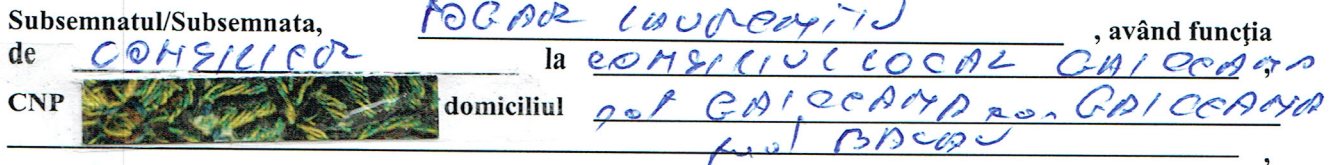 Subsemnatul/Subsemnata, POGAR LAURENȚIU, având funcţia
de CONSILIER la CONSILIUL LOCAL GAICEANA,
CNP domiciliul sat GAICEANA com GAICEANA
jud BACAU,